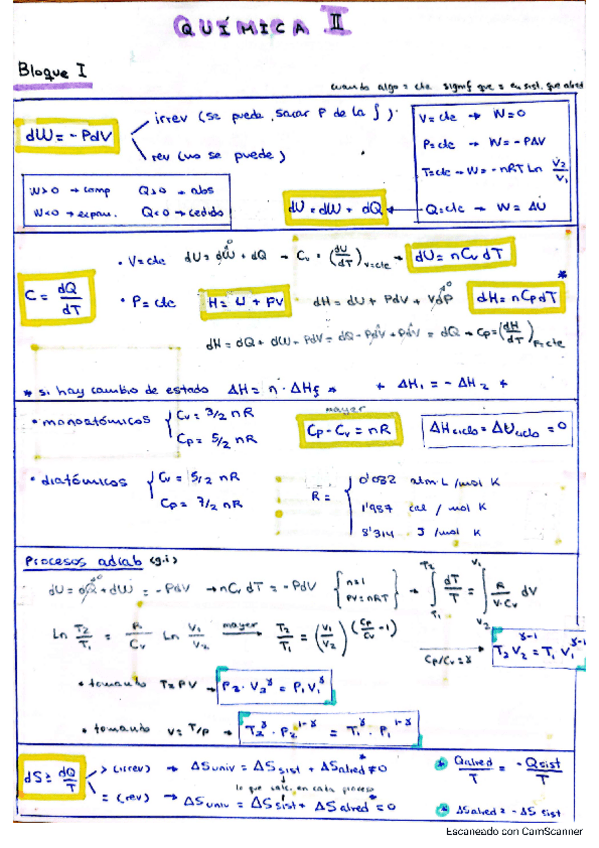 QUÍMICA II
Bloque I
cuando algo = cte signif que = en sist. que alred
dW = - PdV
irrev (se puede sacar P de la ∫).
rev (no se puede)
V = cte → W = 0
P = cte → W = - PΔV
T = cte → W = - nRT Ln V2/V1
Q = cte → W = ΔU
W>0 → comp Q>0 → abs
W<0 → expan. Q<0 → cedido
dU = dW + dQ
C = dQ/dT
• V = cte dU = dW⁰ + dQ → Cv = (dU/dT)V=cte → dU = nCv dT
• P = cte H = U + PV dH = dU + PdV + VdP⁰ dH = nCpdT *
dH = dQ + dW + PdV = dQ - PdV + PdV = dQ → Cp = (dH/dT)P=cte
* si hay cambio de estado ΔH = n · ΔHf * * ΔH1 = - ΔH2 *
• monoatómicos { Cv = 3/2 nR
Cp = 5/2 nR
mayer
Cp - Cv = nR
ΔHciclo = ΔUciclo = 0
• diatómicos { Cv = 5/2 nR
Cp = 7/2 nR
R = { 0'082 atm·L / mol K
1'987 cal / mol K
8'314 J / mol K
Procesos adiab (g.i)
dU = dQ⁰ + dW = - PdV → nCv dT = - PdV { n=1 PV = nRT } → ∫T1T2 dT/T = ∫V2V1 R/V·Cv dV
Ln T2/T1 = R/Cv Ln V1/V2 mayer→ T2/T1 = (V1/V2)^(Cp/Cv - 1) Cp/Cv = γ → T2 V2^γ-1 = T1 V1^γ-1
• tomando T = PV → P2 · V2^γ = P1 V1^γ
• tomando V = T/P → T2^γ · P2^1-γ = T1^γ · P1^1-γ
dS ≥ dQ/T
> (irrev) → ΔSuniv = ΔSsist + ΔSalred ≠ 0
lo que calc. en cada proceso
= (rev) → ΔSuniv = ΔSsist + ΔSalred = 0
* Qalred/T = - Qsist/T
* ΔSalred = - ΔSsist
Escaneado con CamScanner